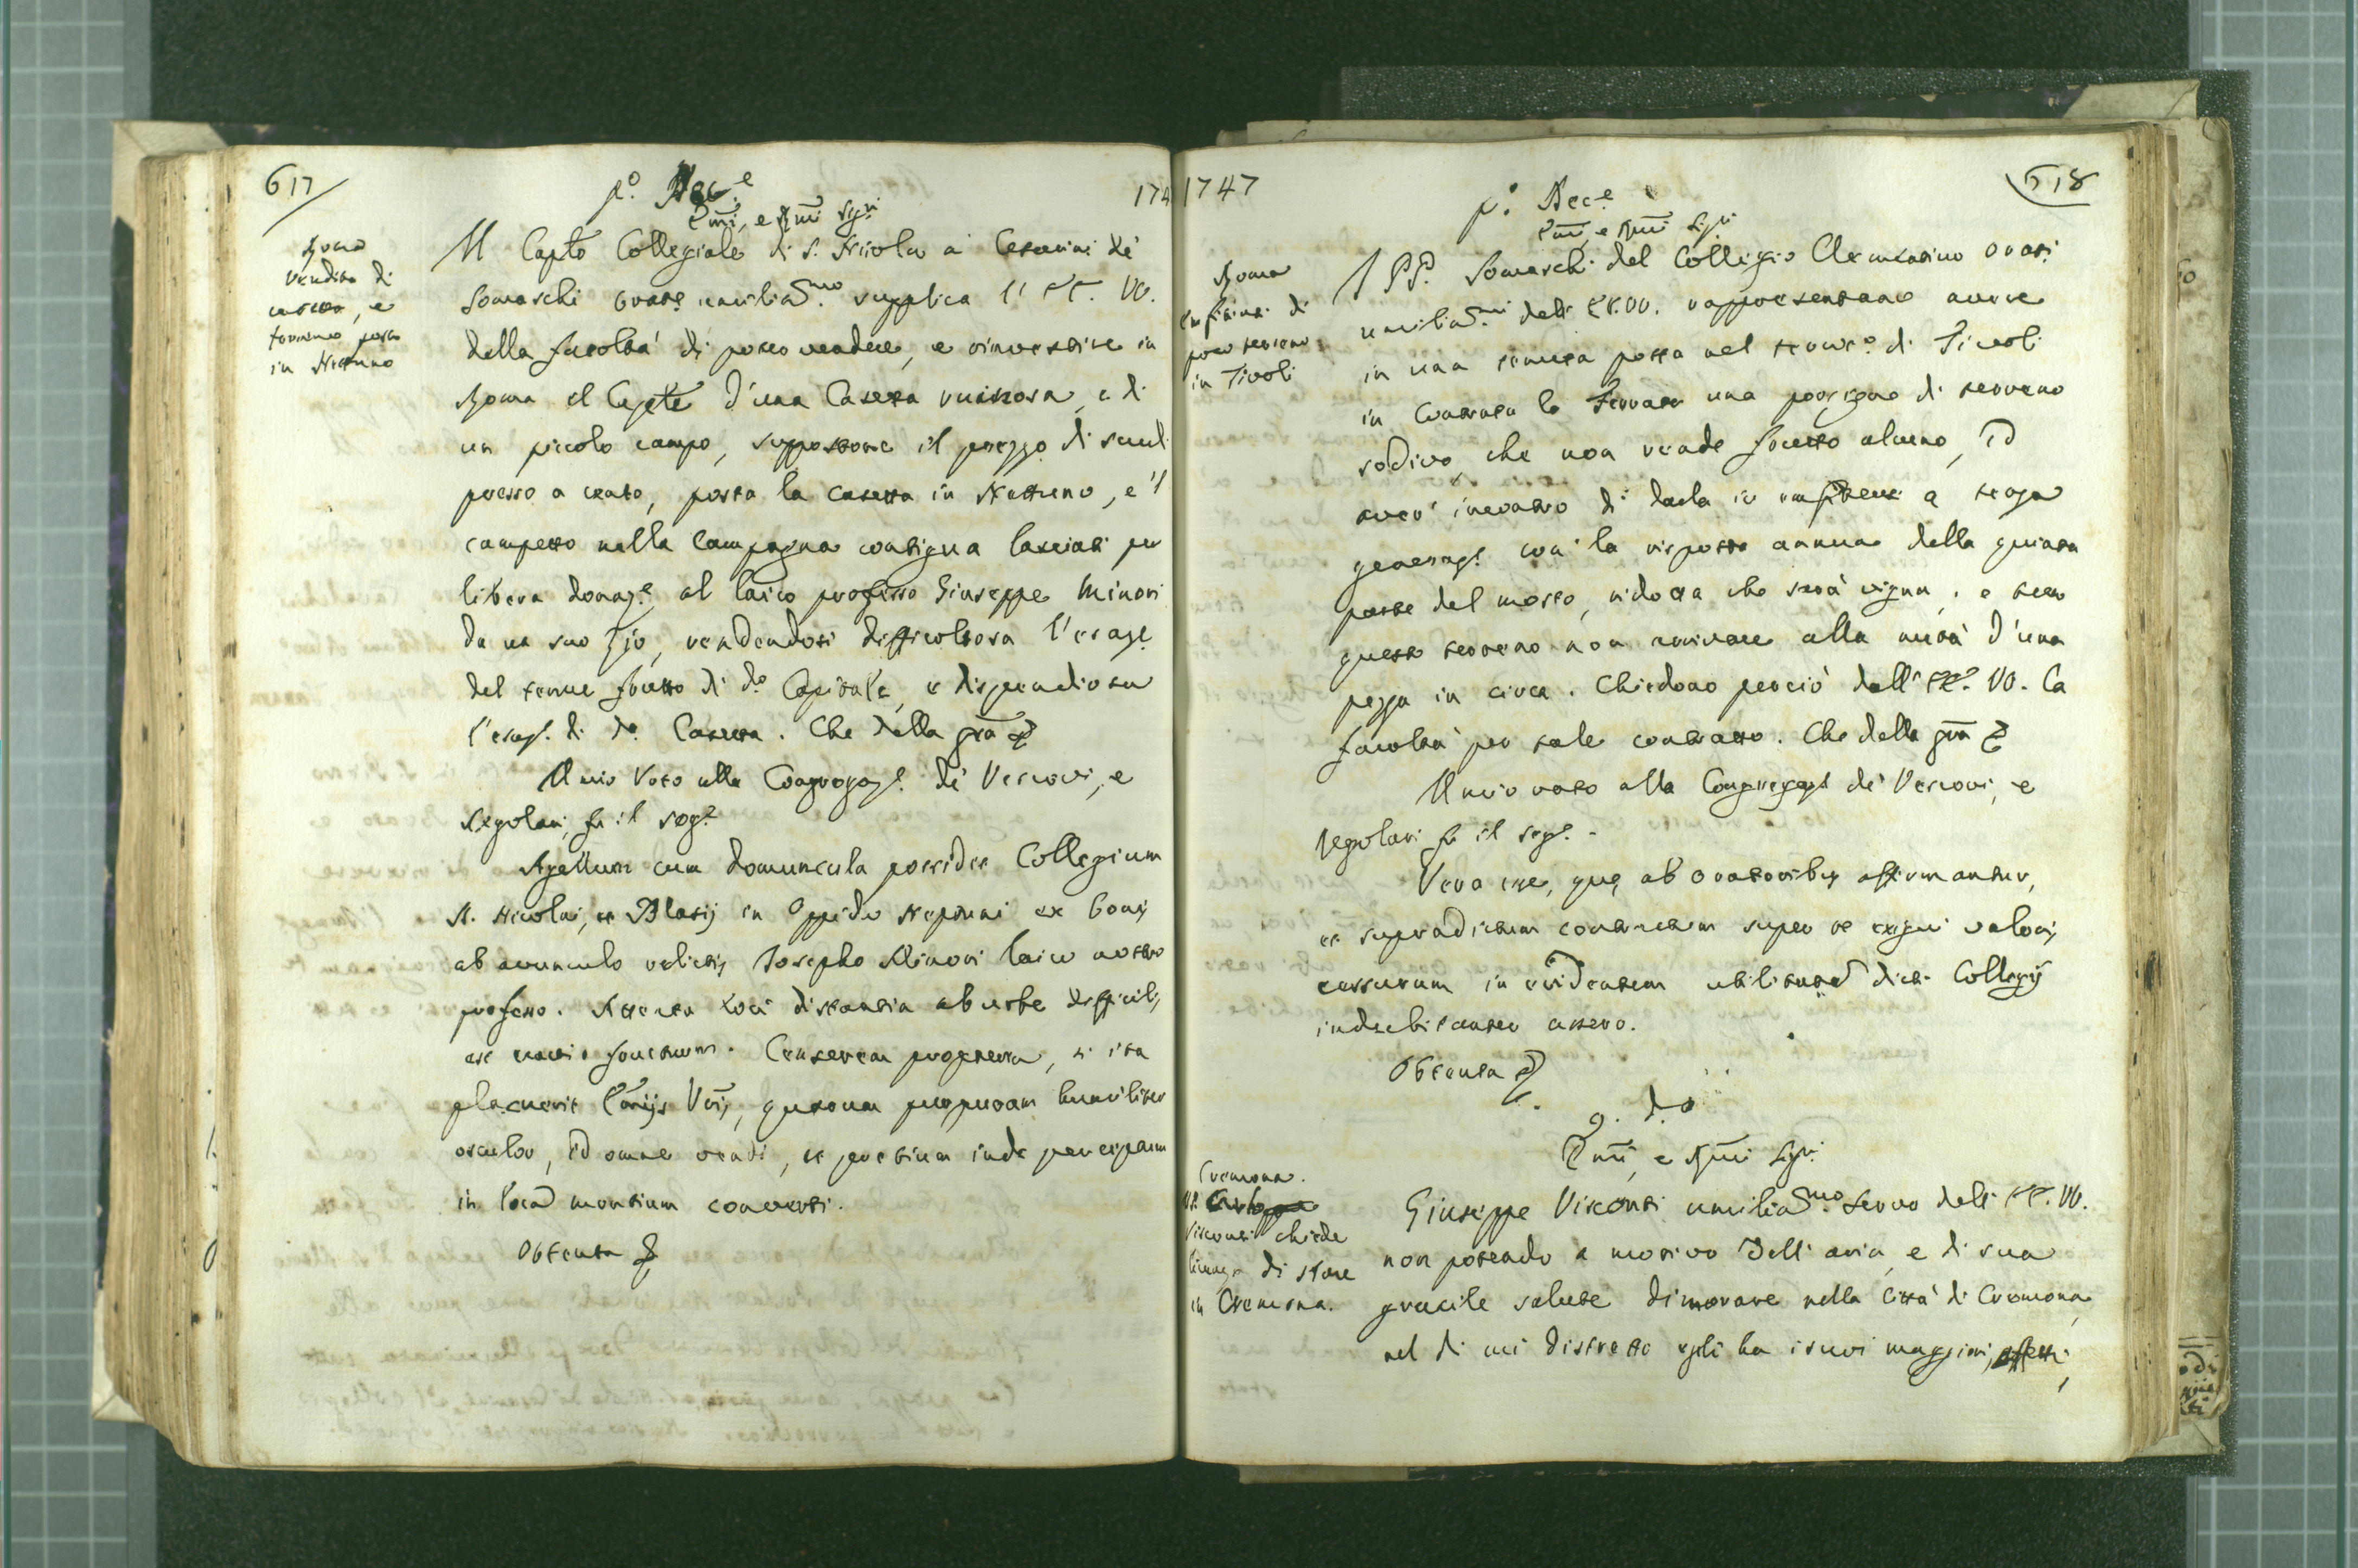 617
p.º Xbre
174
Emi, e Rmi Sigri
Roma
vendita di
casetta, e
terreno posto
in Nettuno
Il Caplo Collegiale di S. Nicola a' Cesarini de'
Somaschi Orate umiliassmo supplica l' EE. VV.
della facoltà di poter vendere, e rinvestire in
Roma il Caplè d'una Casetta ruinosa, e di
un piccolo campo, suppostone il prezzo di scudi
presso a cento, posta la casetta in Nettuno, e 'l
campetto nella Campagna contigua lasciati per
libera donaz.e al laico professo Giuseppe Minori
da un suo zio, rendendosi difficoltosa l'esaz.e
del tenue frutto di do Capitale, e dispendiosa
l'esaz.e di da Casetta. Che della gra &
Il mio Voto alla Congregaz.e de' Vescovi, e
Regolari, fu il seg.e
Agellum cum domuncula possidet Collegium
SS. Nicolai, et Blasij in Oppido Neptuni ex bonis
ab avunculo relictis Josepho Minori laico nostro
professo. Attenta loci distantia ab urbe difficilis
est fructuum. Censerem propterea, si ita
placuerit Emijs Vris, quorum purpuram humiliter
osculor, id omne vendi, et pretium inde percipiam
in loca montium converti.
Obtenta &
1747
p.º Xbre
618
Emi, e Rmi Sigri
Roma
Enfiteusi di
poco terreno
in Tivoli
I PP. Somaschi del Collegio Clementino Orati
umiliassmi dell' EE. VV. rappresentano avere
in una tenuta posta nel territo di Tivoli
in Contrada le Ferrate una porzione di terreno
sodivo, che non rende frutto alcuno, ed
aver' incontro di darla in enfiteusi a terza
generaz.e con la risposta annua della quinta
parte del mosto, ridotta che sarà vigna, e tutto
questo terreno non arrivare alla metà d'una
pezza in circa. Chiedono perciò dall' EE. VV. la
facoltà per tale contratto. Che della gra &
Il mio voto alla Congregaz.e de' Vescovi, e
Regolari fu il seg.e
Vera esse, quę ab oratoribus affirmantur,
et supradictum contractum super re exigui valoris
cessurum in evidentem utilitatem dicti Collegij
indubitanter assero.
Obtenta &
9. do
Emi, e Rmi Sigri
Cremona.
Visconti chiede
licenza di stare
in Cremona.
Giuseppe Visconti umiliassmo servo dell' EE. VV.
non potendo a motivo dell' aria, e di sua
gracile salute dimorare nella Città di Cremona,
nel di cui distretto egli ha i suoi maggiori effetti,